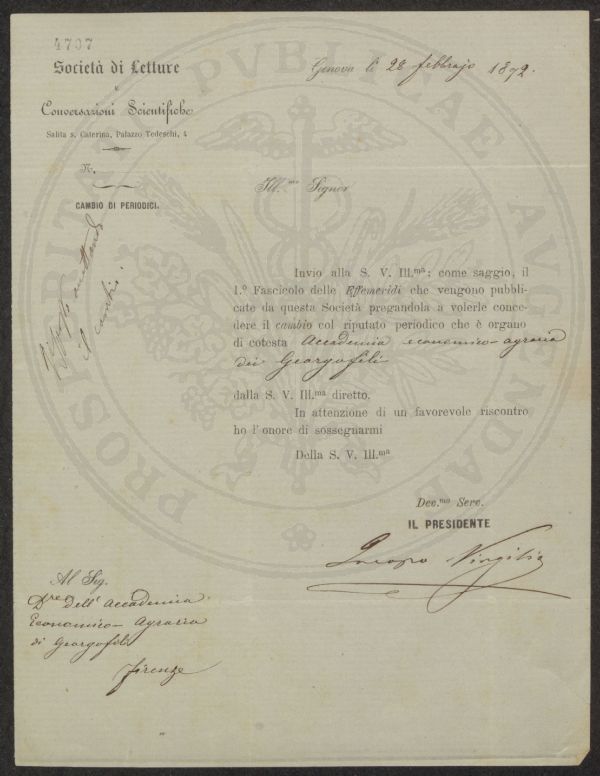 4707
Società di Letture
e
Conversazioni Scientifiche
Salita s. Caterina, Palazzo Tedeschi, 4
N.
CAMBIO DI PERIODICI.
Genova li 28 febbrajo 1872.
Ill.mo Signor
il cambio
Invio alla S. V. Ill.ma; come saggio, il
1.º Fascicolo delle Effemeridi che vengono pubbli-
cate da questa Società pregandola a volerle conce-
dere il cambio col riputato periodico che è organo
di cotesta Accademia economico-agraria
dei Georgofili
dalla S. V. Ill.ma diretto.
In attenzione di un favorevole riscontro
ho l'onore di sossegnarmi
Della S. V. Ill.ma
Dev.mo Serv.
IL PRESIDENTE
Jacopo Virgilio
Al Sig.
Dre dell'Accademia
Economico-Agraria
di Georgofili
Firenze
PROSPERITATI PVBLICAE AVGENDAE